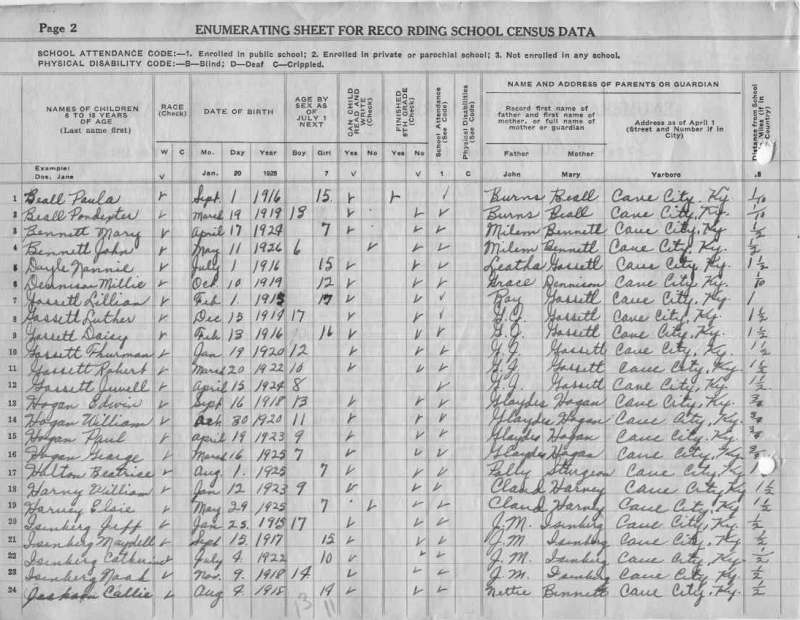 Page 2
ENUMERATING SHEET FOR RECO RDING SCHOOL CENSUS DATA
SCHOOL ATTENDANCE CODE:—1. Enrolled in public school; 2. Enrolled in private or parochial school; 3. Not enrolled in any school.
PHYSICAL DISABILITY CODE:—B—Blind; D—Deaf C—Crippled.
NAMES OF CHILDREN 6 TO 18 YEARS OF AGE (Last name first) RACE (Check) DATE OF BIRTH AGE BY SEX AS OF JULY 1 NEXT CAN CHILD READ AND WRITE (Check) FINISHED 8TH GRADE (Check) School Attendance (See Code) Physical Disabilities (See Code) NAME AND ADDRESS OF PARENTS OR GUARDIAN Distance from School in Miles (if in Country)
Record first name of father and first name of mother, or full name of mother or guardian Address as of April 1 (Street and Number if in City)
W C Mo. Day Year Boy Girl Yes No Yes No 1 C Father Mother
Example: Doe, Jane V Jan. 20 1925 7 V V John Mary Yarboro .8
1 Beall Paula Sept. 1 1916 15 Burns Beall Cave City, Ky. 1/10
2 Beall Pondexter March 19 1919 13 Burns Beall Cave City, Ky. 1/10
3 Bennett Mary April 17 1924 7 Milem Bennett Cave City, Ky. 1/2
4 Bennett John May 11 1926 6 Milem Bennett Cave City, Ky. 1/2
5 Doyle Nannie July 1 1916 15 Leatha Gossett Cave City, Ky. 1 1/2
6 Dennison Millie Oct 10 1919 12 Grace Dennison Cave City Ky.
7 Gossett Lillian Feb 1 1915 17 Roy Gossett Cave City, Ky. 1
8 Gossett Luther Dec 15 1914 17 Gossett Cave City, Ky. 1 1/2
9 Gossett Daisy Feb 13 1916 16 Gossett Cave City, Ky. 1 1/2
10 Gossett Thurman Jan 19 1920 12 Gossett Cave City, Ky. 1 1/2
11 Gossett Robert March 20 1922 10 Gossett Cave City, Ky. 1 1/2
12 Gossett Juwell April 15 1924 8 Gossett Cave City Ky. 1 1/2
13 Hogan Edwin Sept 16 1918 13 Glaydes Hogan Cave City, Ky.
14 Hogan William Oct 30 1920 11 Glaydes Hogan Cave City, Ky.
15 Hogan Paul April 19 1923 9 Glaydes Hogan Cave City, Ky.
16 Hogan George March 16 1925 7 Glaydes Hogan Cave City, Ky
17 Hilton Beatrice Aug 1. 1925 7 Sturgeon Cave City, Ky 1
18 Harny William Jan 12 1923 9 Claud Harney Cave City Ky 1 1/2
19 Harney Elsie May 29 1925 7 Claud Harney Cave City, Ky 1 1/2
20 Isenberg Jeff Jan 25. 1915 17 J.M. Isenberg Cave City, Ky. 1/2
21 Isenberg Maydell Sept 15 1917 J.M Isenberg Cave City, Ky. 1/2
22 Isenberg Catherine July 4 1922 10 J.M. Isenberg Cave City, Ky. 1/2
23 Isenberg Noah Nov. 9. 1918 14 J.M. Isenberg Cave City Ky. 1/2
24 Callie Aug 9. 1915 Nettie Bennett Cave City, Ky. 1/2
13 11